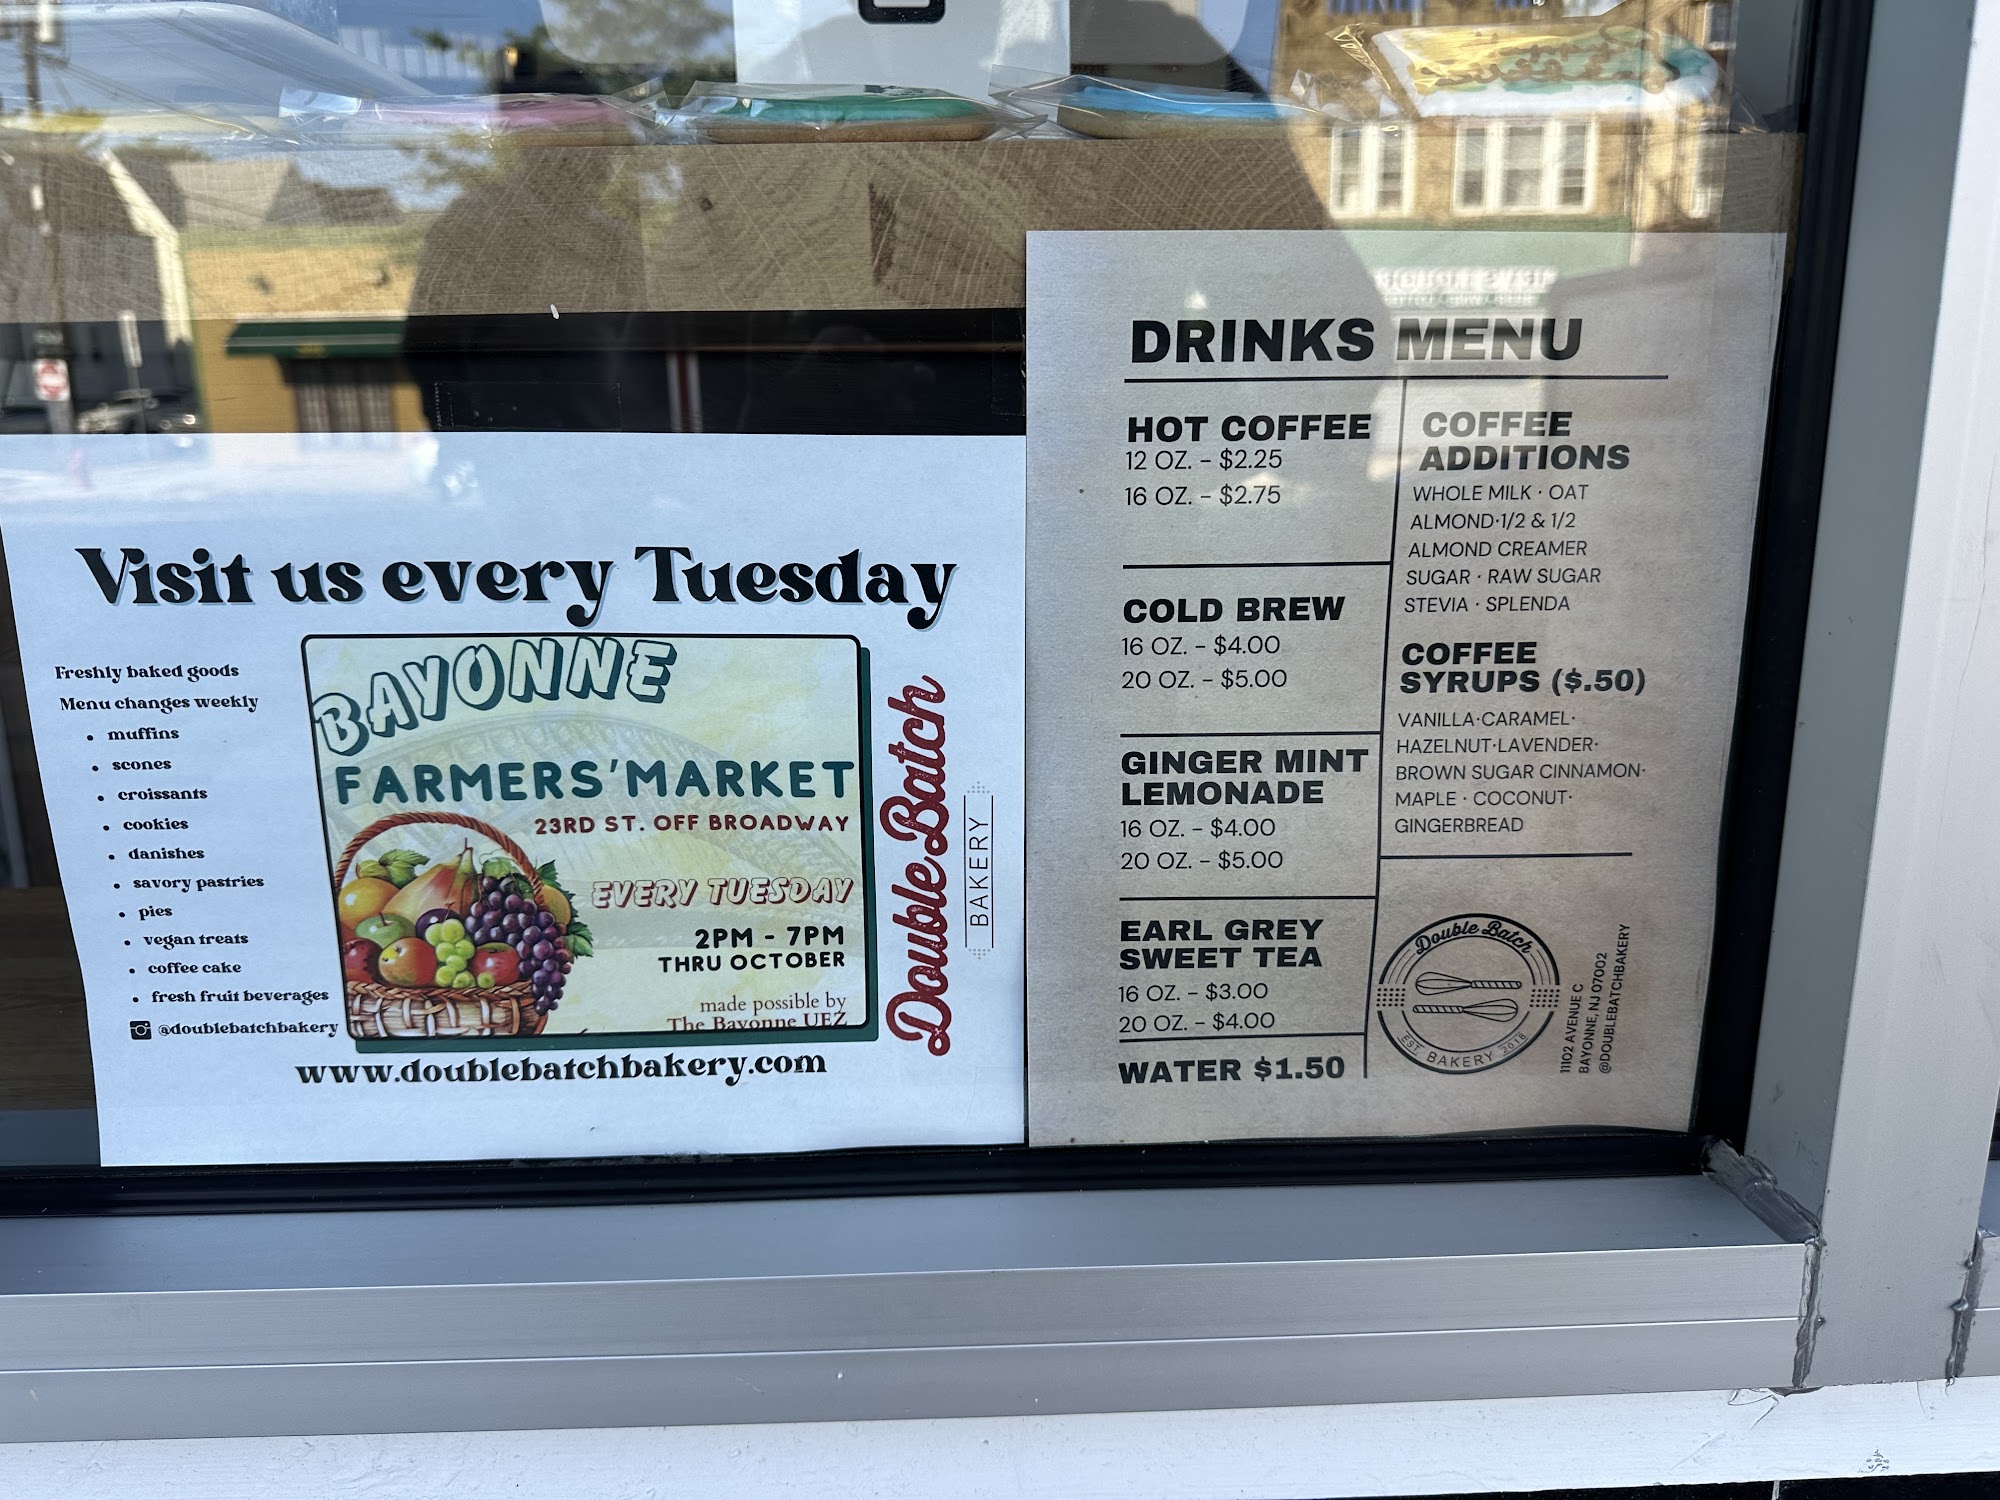 Visit us every Tuesday
Freshly baked goods
Menu changes weekly
• muffins
• scones
• croissants
• cookies
• danishes
• savory pastries
• pies
• vegan treats
• coffee cake
• fresh fruit beverages
@doublebatchbakery
BAYONNE
FARMERS' MARKET
23RD ST. OFF BROADWAY
EVERY TUESDAY
2PM - 7PM
THRU OCTOBER
made possible by
The Bayonne UEZ
Double Batch
BAKERY
www.doublebatchbakery.com
DRINKS MENU
HOT COFFEE
12 OZ. - $2.25
16 OZ. - $2.75
COLD BREW
16 OZ. - $4.00
20 OZ. - $5.00
GINGER MINT
LEMONADE
16 OZ. - $4.00
20 OZ. - $5.00
EARL GREY
SWEET TEA
16 OZ. - $3.00
20 OZ. - $4.00
WATER $1.50
COFFEE
ADDITIONS
WHOLE MILK · OAT
ALMOND·1/2 & 1/2
ALMOND CREAMER
SUGAR · RAW SUGAR
STEVIA · SPLENDA
COFFEE
SYRUPS ($.50)
VANILLA·CARAMEL·
HAZELNUT·LAVENDER·
BROWN SUGAR CINNAMON·
MAPLE · COCONUT·
GINGERBREAD
Double Batch
EST. BAKERY 2018
11102 AVENUE C
BAYONNE, NJ 07002
@DOUBLEBATCHBAKERY